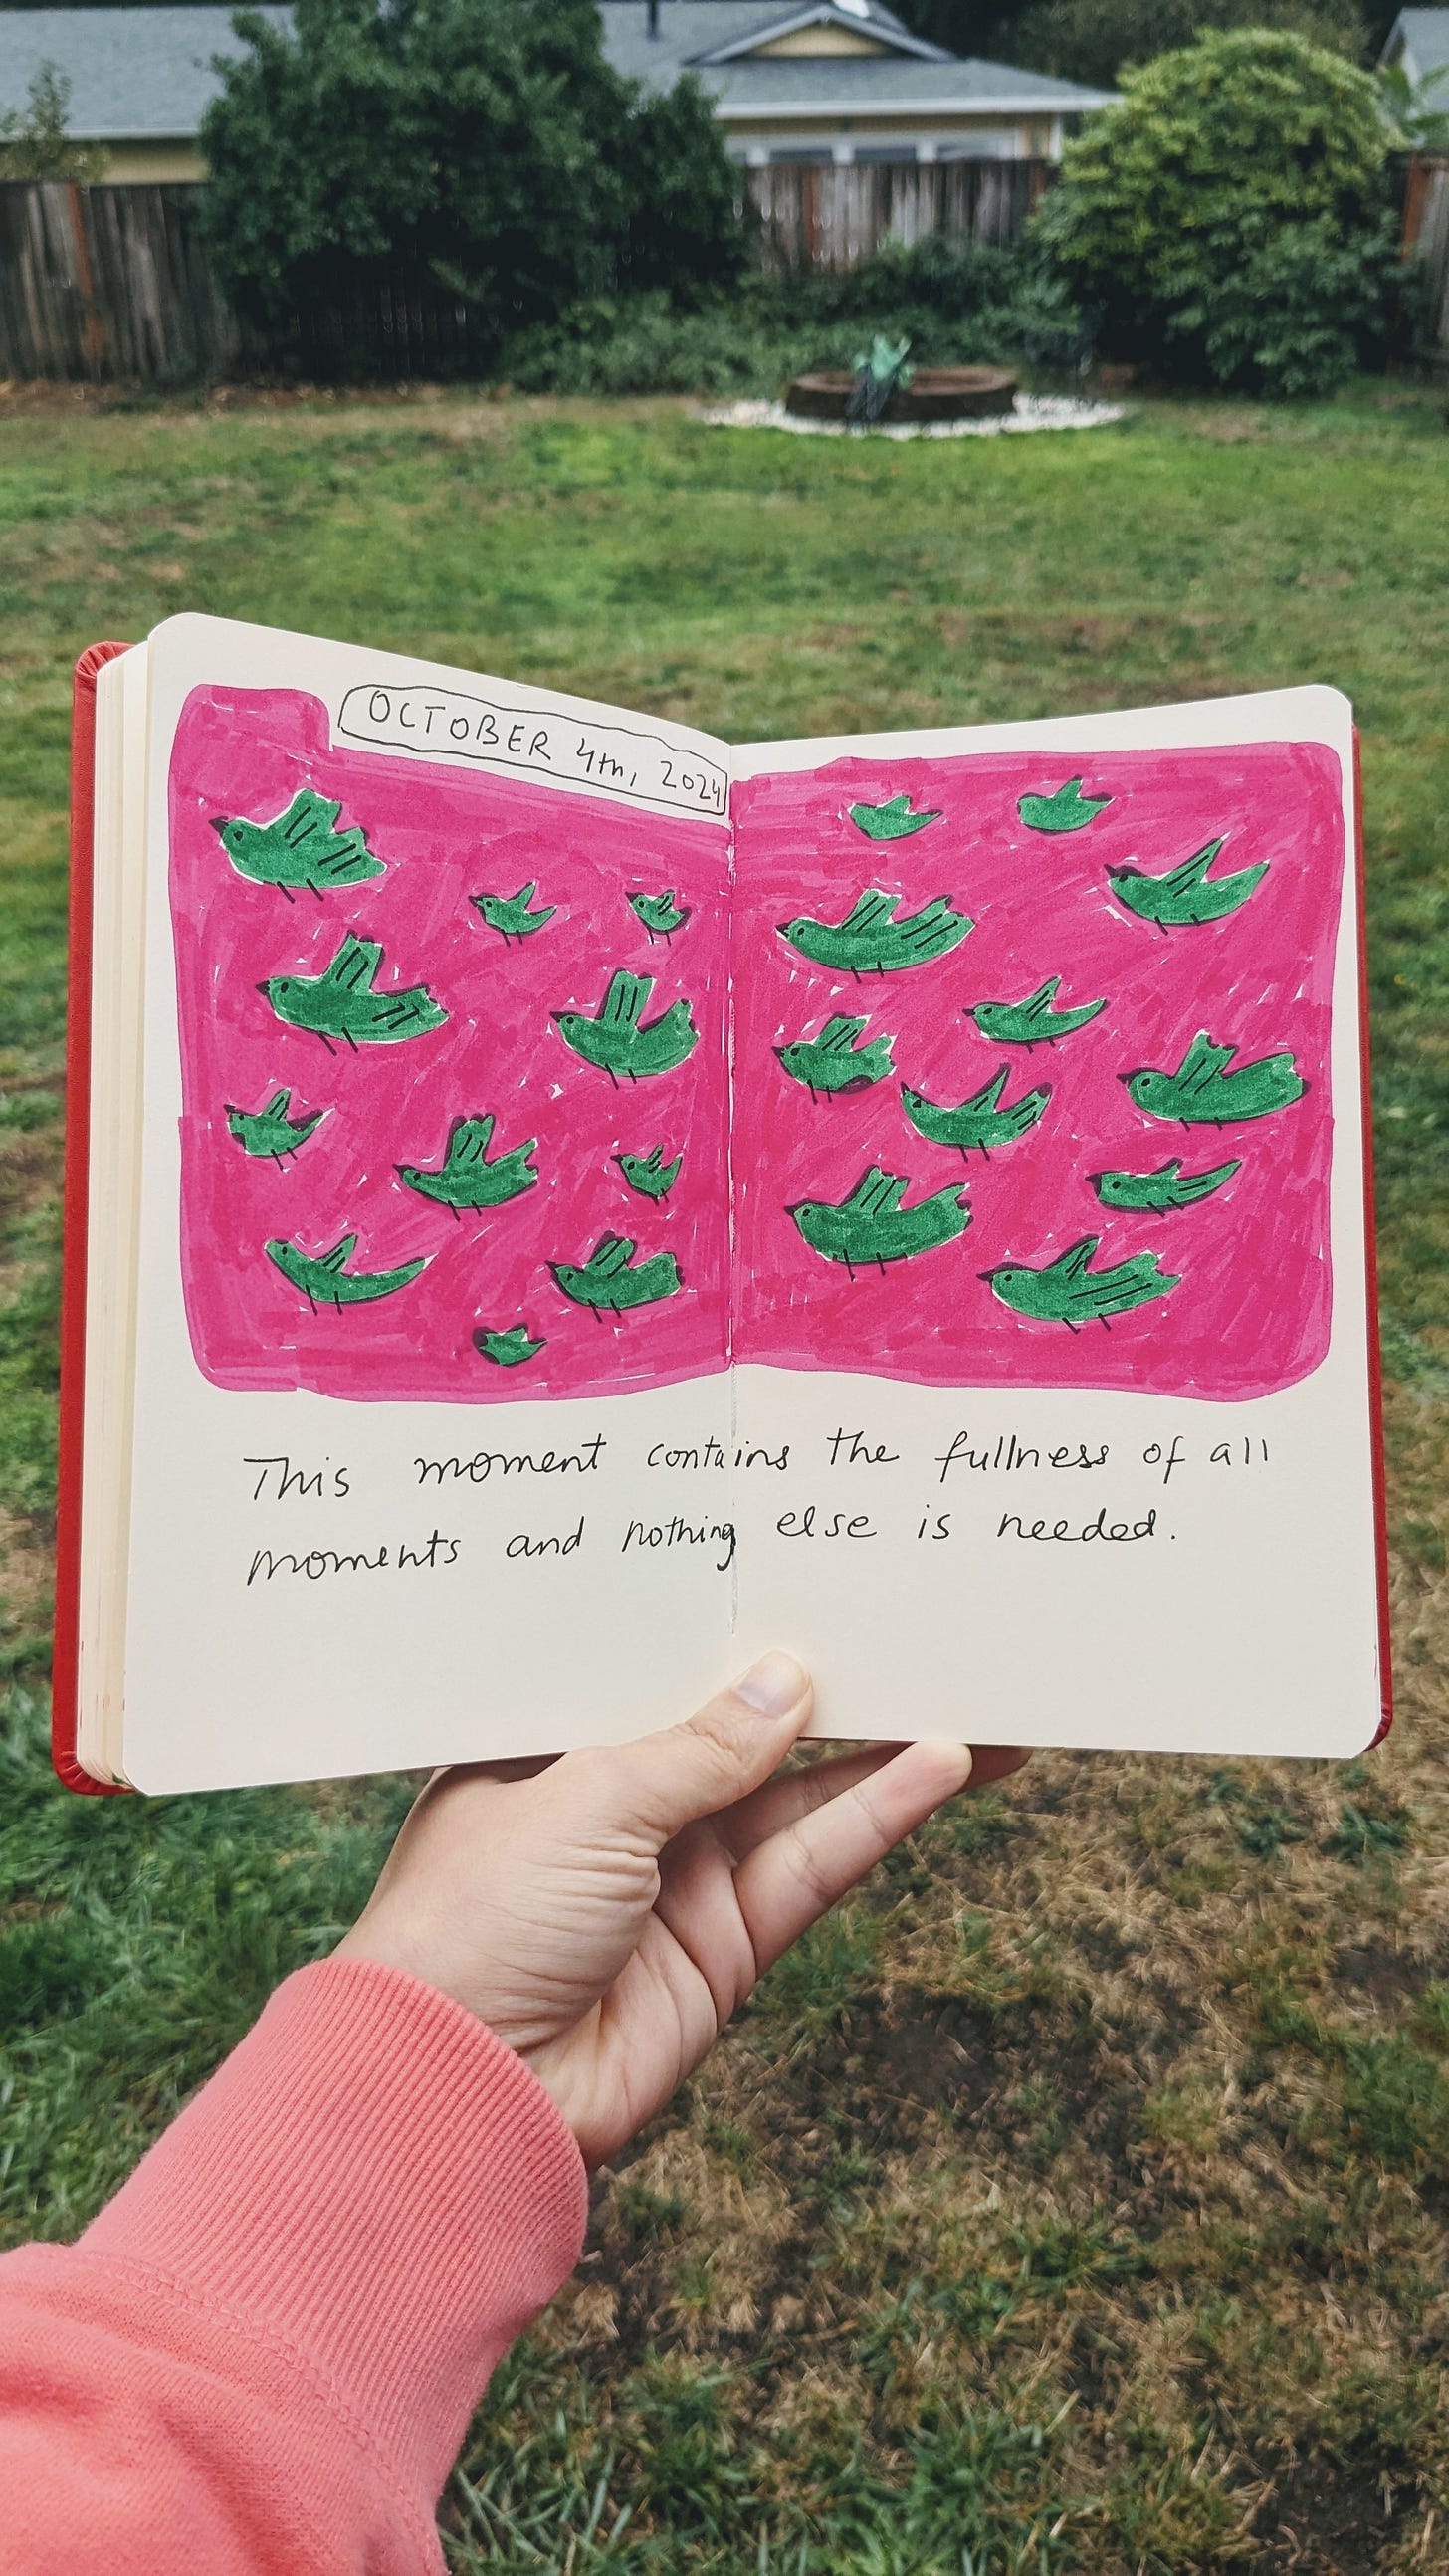 OCTOBER 4th, 2024
This moment contains the fullness of all
moments and nothing else is needed.